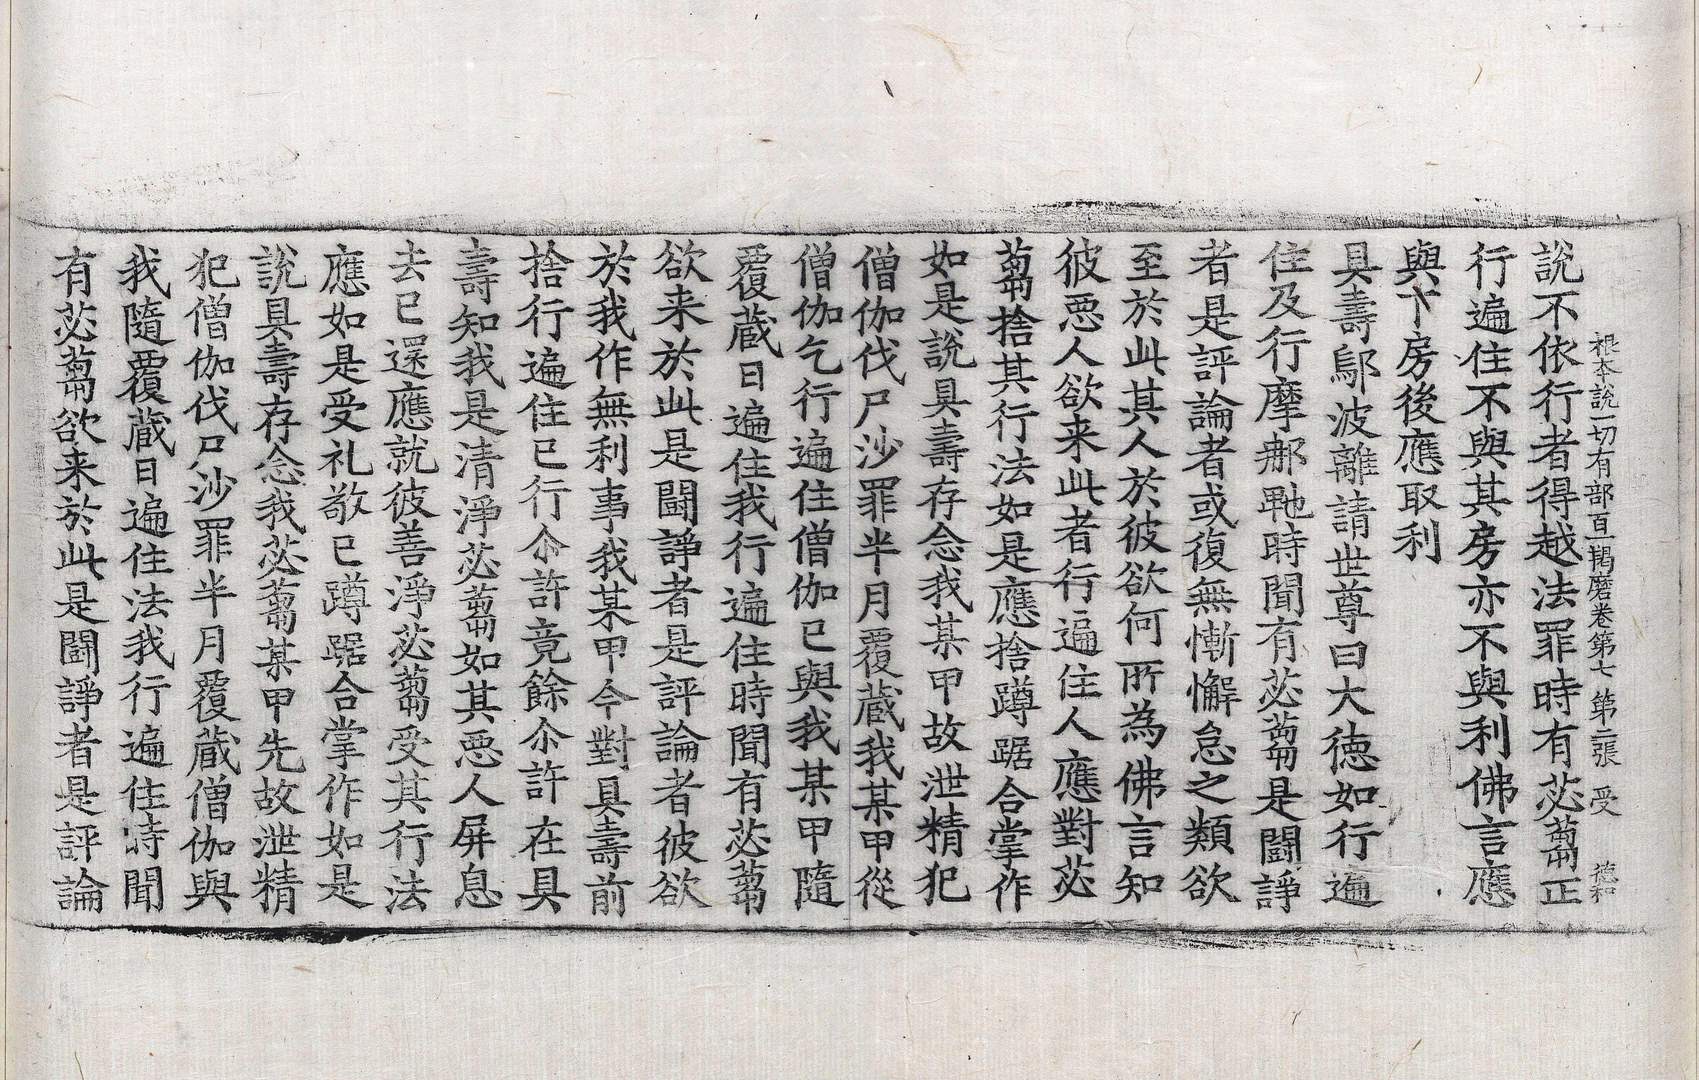 根本說一切有部百一羯磨卷第七 第二張 受 德和
說不依行者得越法罪時有苾蒭正
行遍住不與其房亦不與利佛言應
與下房後應取利
具壽鄔波離請世尊曰大德如行遍
住及行摩那𤘽時聞有苾蒭是鬪諍
者是評論者或復無慚懈怠之類欲
至於此其人於彼欲何所為佛言知
彼惡人欲来此者行遍住人應對苾
蒭捨其行法如是應捨蹲踞合掌作
如是說具壽存念我某甲故泄精犯
僧伽伐尸沙罪半月覆蔵我某甲從
僧伽乞行遍住僧伽已與我某甲隨
覆蔵日遍住我行遍住時聞有苾蒭
欲来於此是鬪諍者是評論者彼欲
於我作無利事我某甲今對具壽前
捨行遍住已行尒許竟餘尒許在具
壽知我是清淨苾蒭如其惡人屏息
去已還應就彼善淨苾蒭受其行法
應如是受礼敬已蹲踞合掌作如是
說具壽存念我苾蒭某甲先故泄精
犯僧伽伐尸沙罪半月覆蔵僧伽與
我隨覆蔵日遍住法我行遍住時聞
有苾蒭欲来於此是鬪諍者是評論